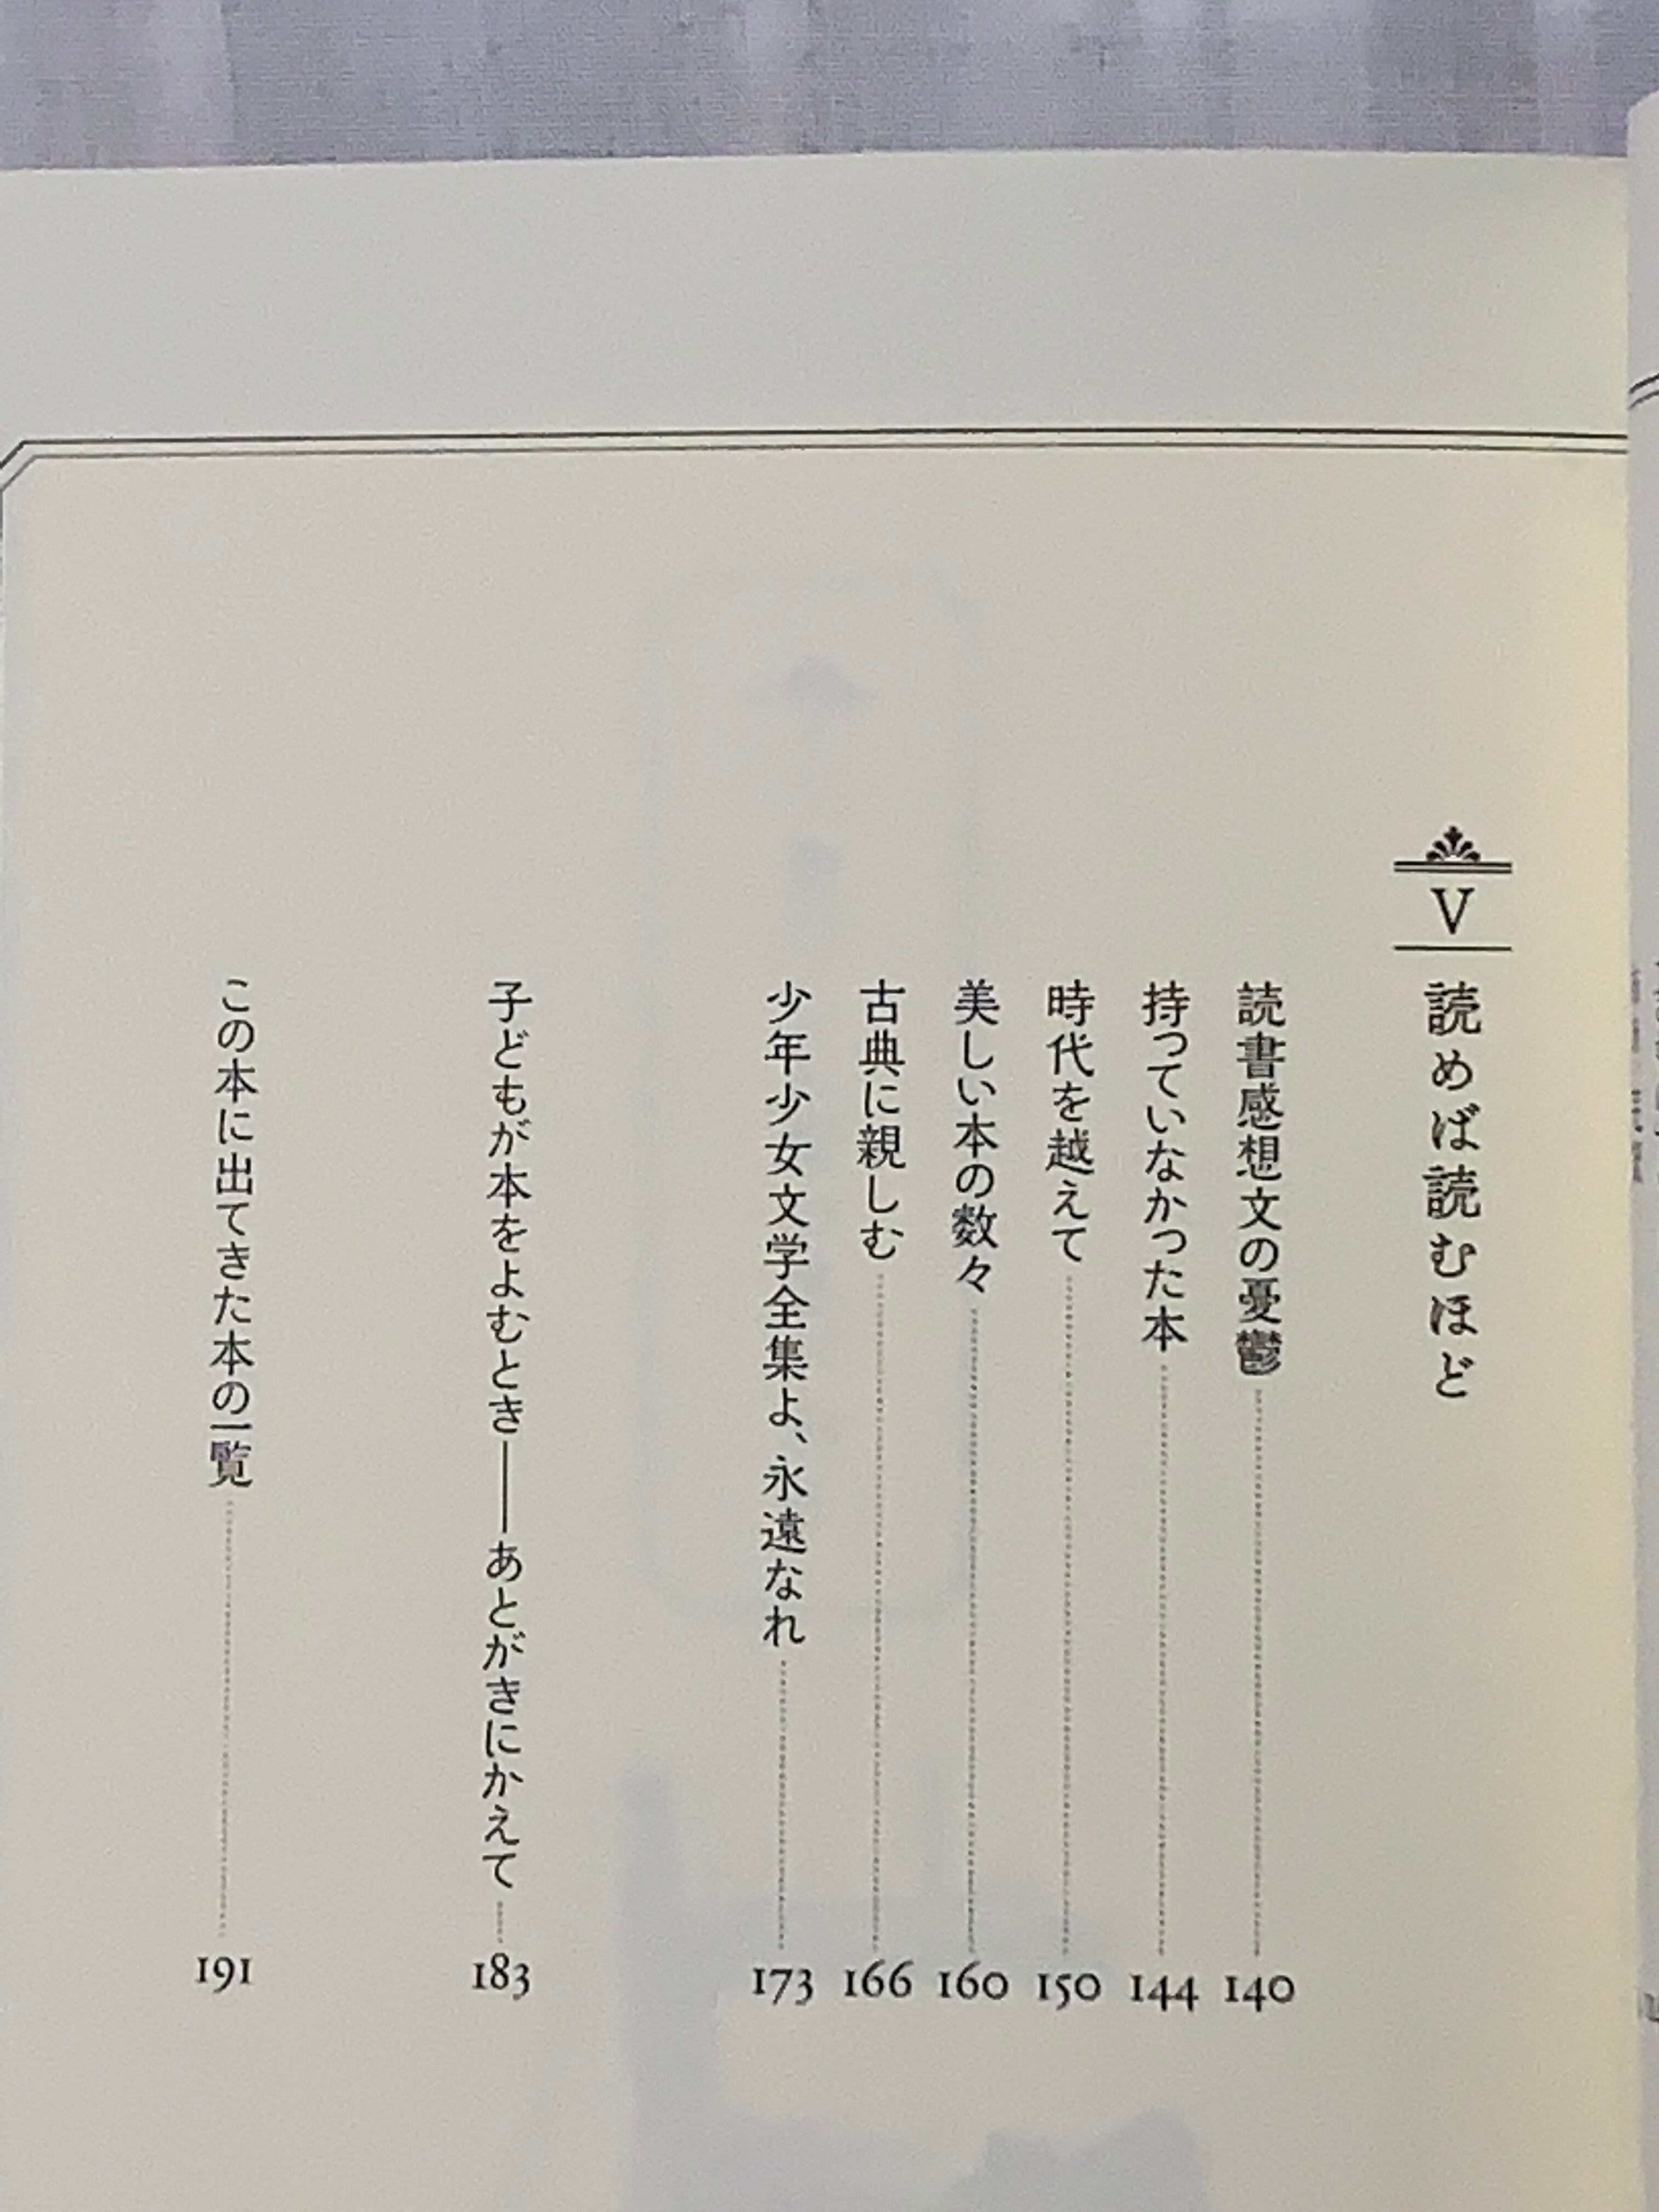 V 読めば読むほど
読書感想文の憂鬱 140
持っていなかった本 144
時代を越えて 150
美しい本の数々 160
古典に親しむ 166
少年少女文学全集よ、永遠なれ 173
子どもが本をよむとき――あとがきにかえて 183
この本に出てきた本の一覧 191